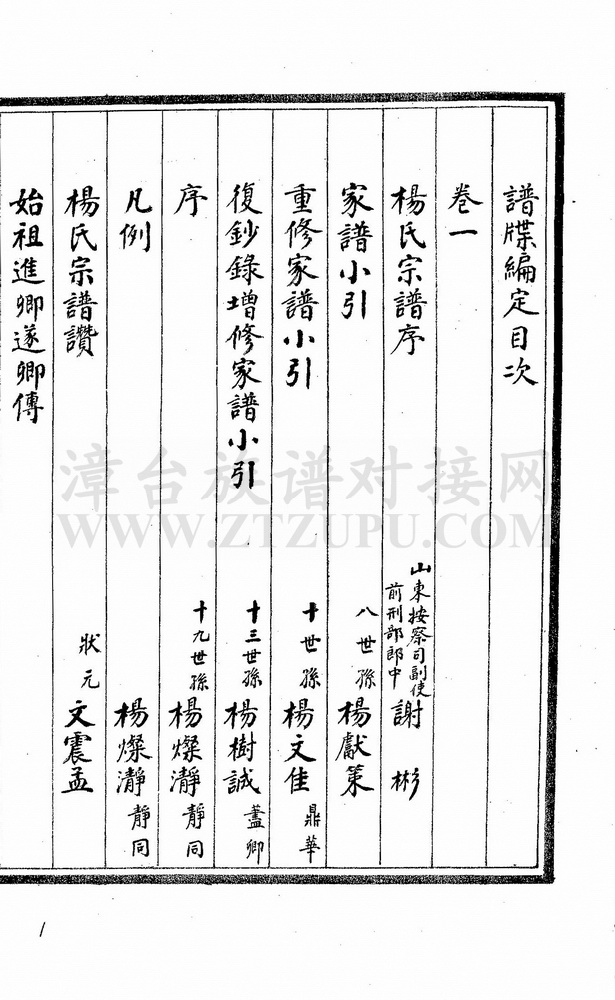 譜牒編定目次
卷一
楊氏宗譜序 山東按察司副使 前刑部郎中 謝彬
家譜小引 八世孫 楊獻策
重修家譜小引 十世孫 楊文佳 鼎華
復鈔錄增修家譜小引 十三世孫 楊樹誠 藎卿
序 十九世孫 楊燦瀞 靜同
凡例 楊燦瀞 靜同
楊氏宗譜讚 狀元 文震孟
始祖進卿遂卿傳
漳台族谱对接网
WWW.ZTZUPU.COM
1